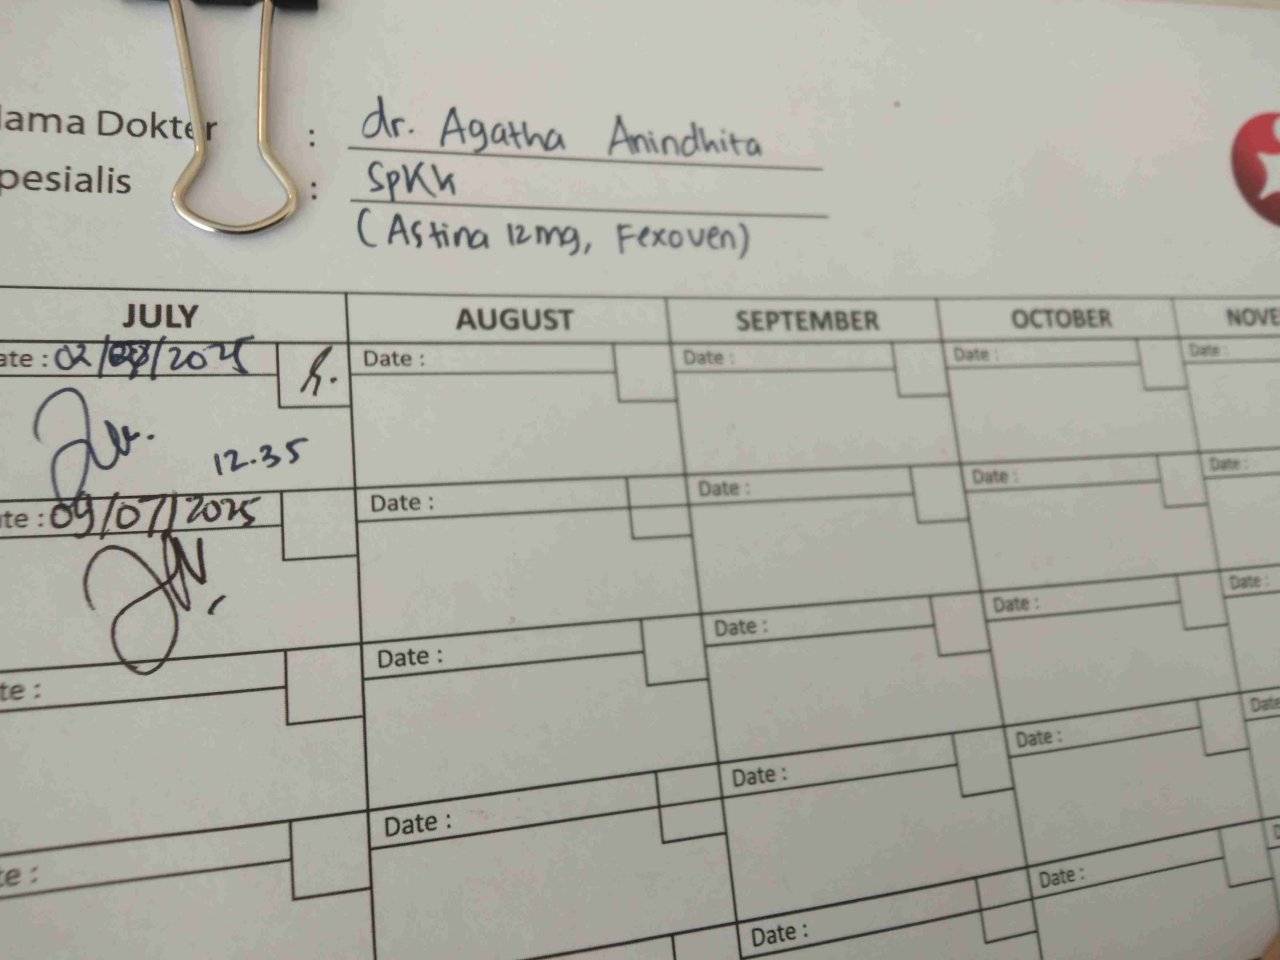 lama Dokter : dr. Agatha Anindhita
pesialis : SpKK
(Astina 12mg, Fexoven)
JULY AUGUST SEPTEMBER OCTOBER NOVE
ate : 02/07/2025 Date : Date : Date : Date :
12.35
te : 09/07/2025 Date : Date : Date : Date :
te : Date : Date : Date : Date :
te : Date : Date : Date : Date
Date : Date : D